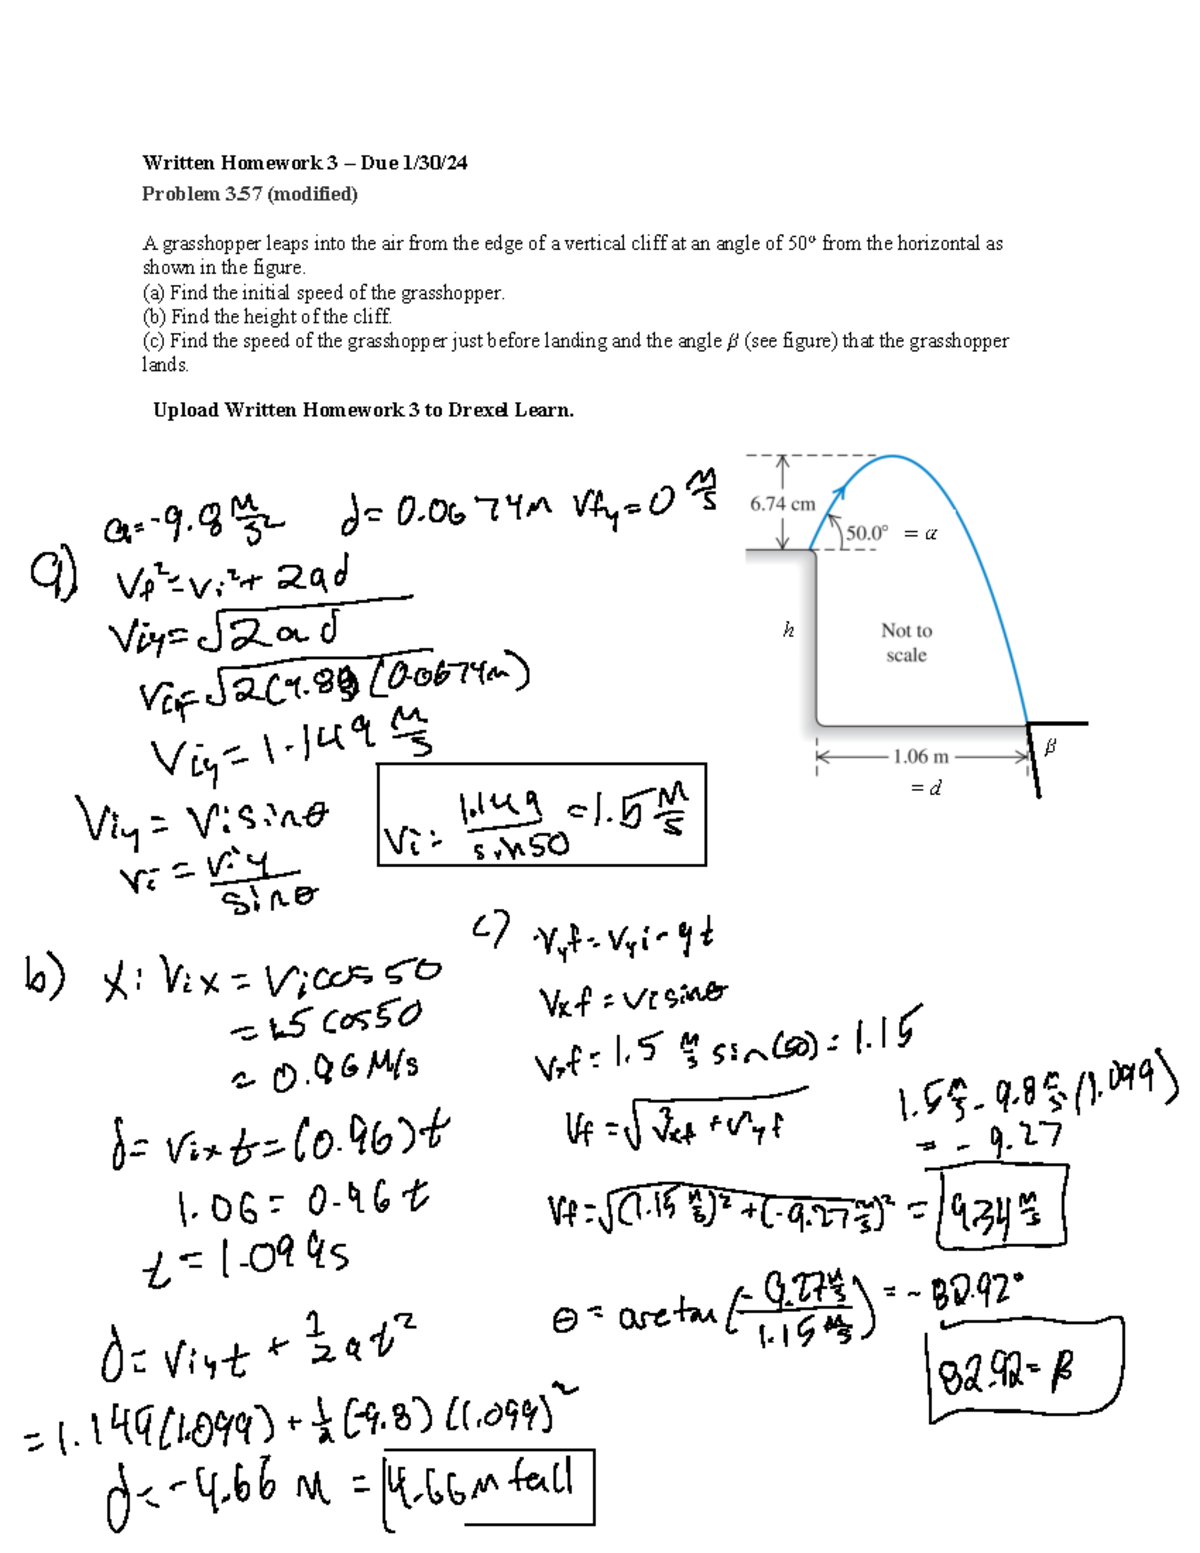 Written Homework 3 – Due 1/30/24
Problem 3.57 (modified)
A grasshopper leaps into the air from the edge of a vertical cliff at an angle of 50° from the horizontal as
shown in the figure.
(a) Find the initial speed of the grasshopper.
(b) Find the height of the cliff.
(c) Find the speed of the grasshopper just before landing and the angle β (see figure) that the grasshopper
lands.
Upload Written Homework 3 to Drexel Learn.
6.74 cm
50.0° = α
h
Not to
scale
1.06 m
= d
β
a=-9.8 M/s² d= 0.0674m Vfy=0 M/s
a) Vf²=Vi²+ 2ad
Viy=√2ad
Viy=√2(9.8)(0.0674m)
Viy=1.149 M/s
Viy= Visinθ
Vi = Viy/sinθ
Vi= 1.149/sin50 =1.5 M/s
b) X: Vix= Vicos50
= 1.5 cos50
= 0.96 M/s
d= Vixt=(0.96)t
1.06= 0.96t
t=1.099s
d= Viyt + 1/2at²
=1.149(1.099)+1/2(-9.8)(1.099)²
d=-4.66 M = 4.66m fall
c) Vyf=Vyi-gt
Vxf=Visinθ
Vxf=1.5 M/s sin(50)=1.15
Vf=√V²xf+V²yf
1.5 M/s-9.8 M/s(1.099)
= -9.27
Vf=√(1.15 M/s)²+(-9.27 M/s)² = 9.34 M/s
θ= arctan(-9.27 M/s / 1.15 M/s) = -82.92°
82.92=β